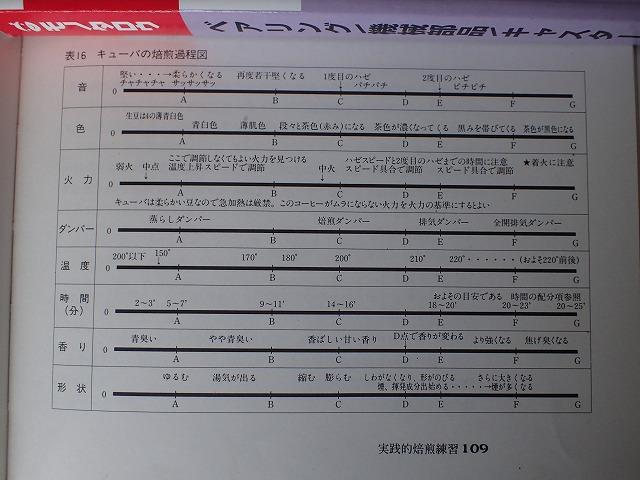 ベアリング/機械部品/キャスター
表16 キューバの焙煎過程図
音
堅い・・・→柔らかくなる 再度若干堅くなる 1度目のハゼ 2度目のハゼ
チャチャチャ サッサッサッ パチパチ ピチピチ
0 A B C D E F G
色
生豆は4の薄青白色
青白色 薄肌色 段々と茶色(赤み)になる 茶色が濃くなってくる 黒みを帯びてくる 茶色が黒色になる
0 A B C D E F G
火力
ここで調節しなくてもよい火力を見つける ハゼスピードと2度目のハゼまでの時間に注意 ★着火に注意
弱火 中点 温度上昇スピードで調節 中火 スピード具合で調節 スピード具合で調節
0 A B C D E F G
キューバは柔らかい豆なので急加熱は厳禁。このコーヒーがムラにならない火力を火力の基準にするとよい
ダンパー
蒸らしダンパー 焙煎ダンパー 排気ダンパー 全開排気ダンパー
0 A B C D E F G
温度
200°以下 150° 170° 180° 200° 210° 220°・・・・・・(およそ220°前後)
0 A B C D E F G
時間
(分)
およその目安である 時間の配分項参照
2~3' 5~7' 9~11' 14~16' 18~20' 20~23' 20~25'
0 A B C D E F G
香り
青臭い やや青臭い 香ばしい甘い香り D点で香りが変わる より強くなる 焦げ臭くなる
0 A B C D E F G
形状
ゆるむ 湯気が出る 縮む 膨らむ しわがなくなり、形がのびる さらに大きくなる
煙、揮発成分出始める・・・・・→煙が多くなる
0 A B C D E F G
実践的焙煎練習 109